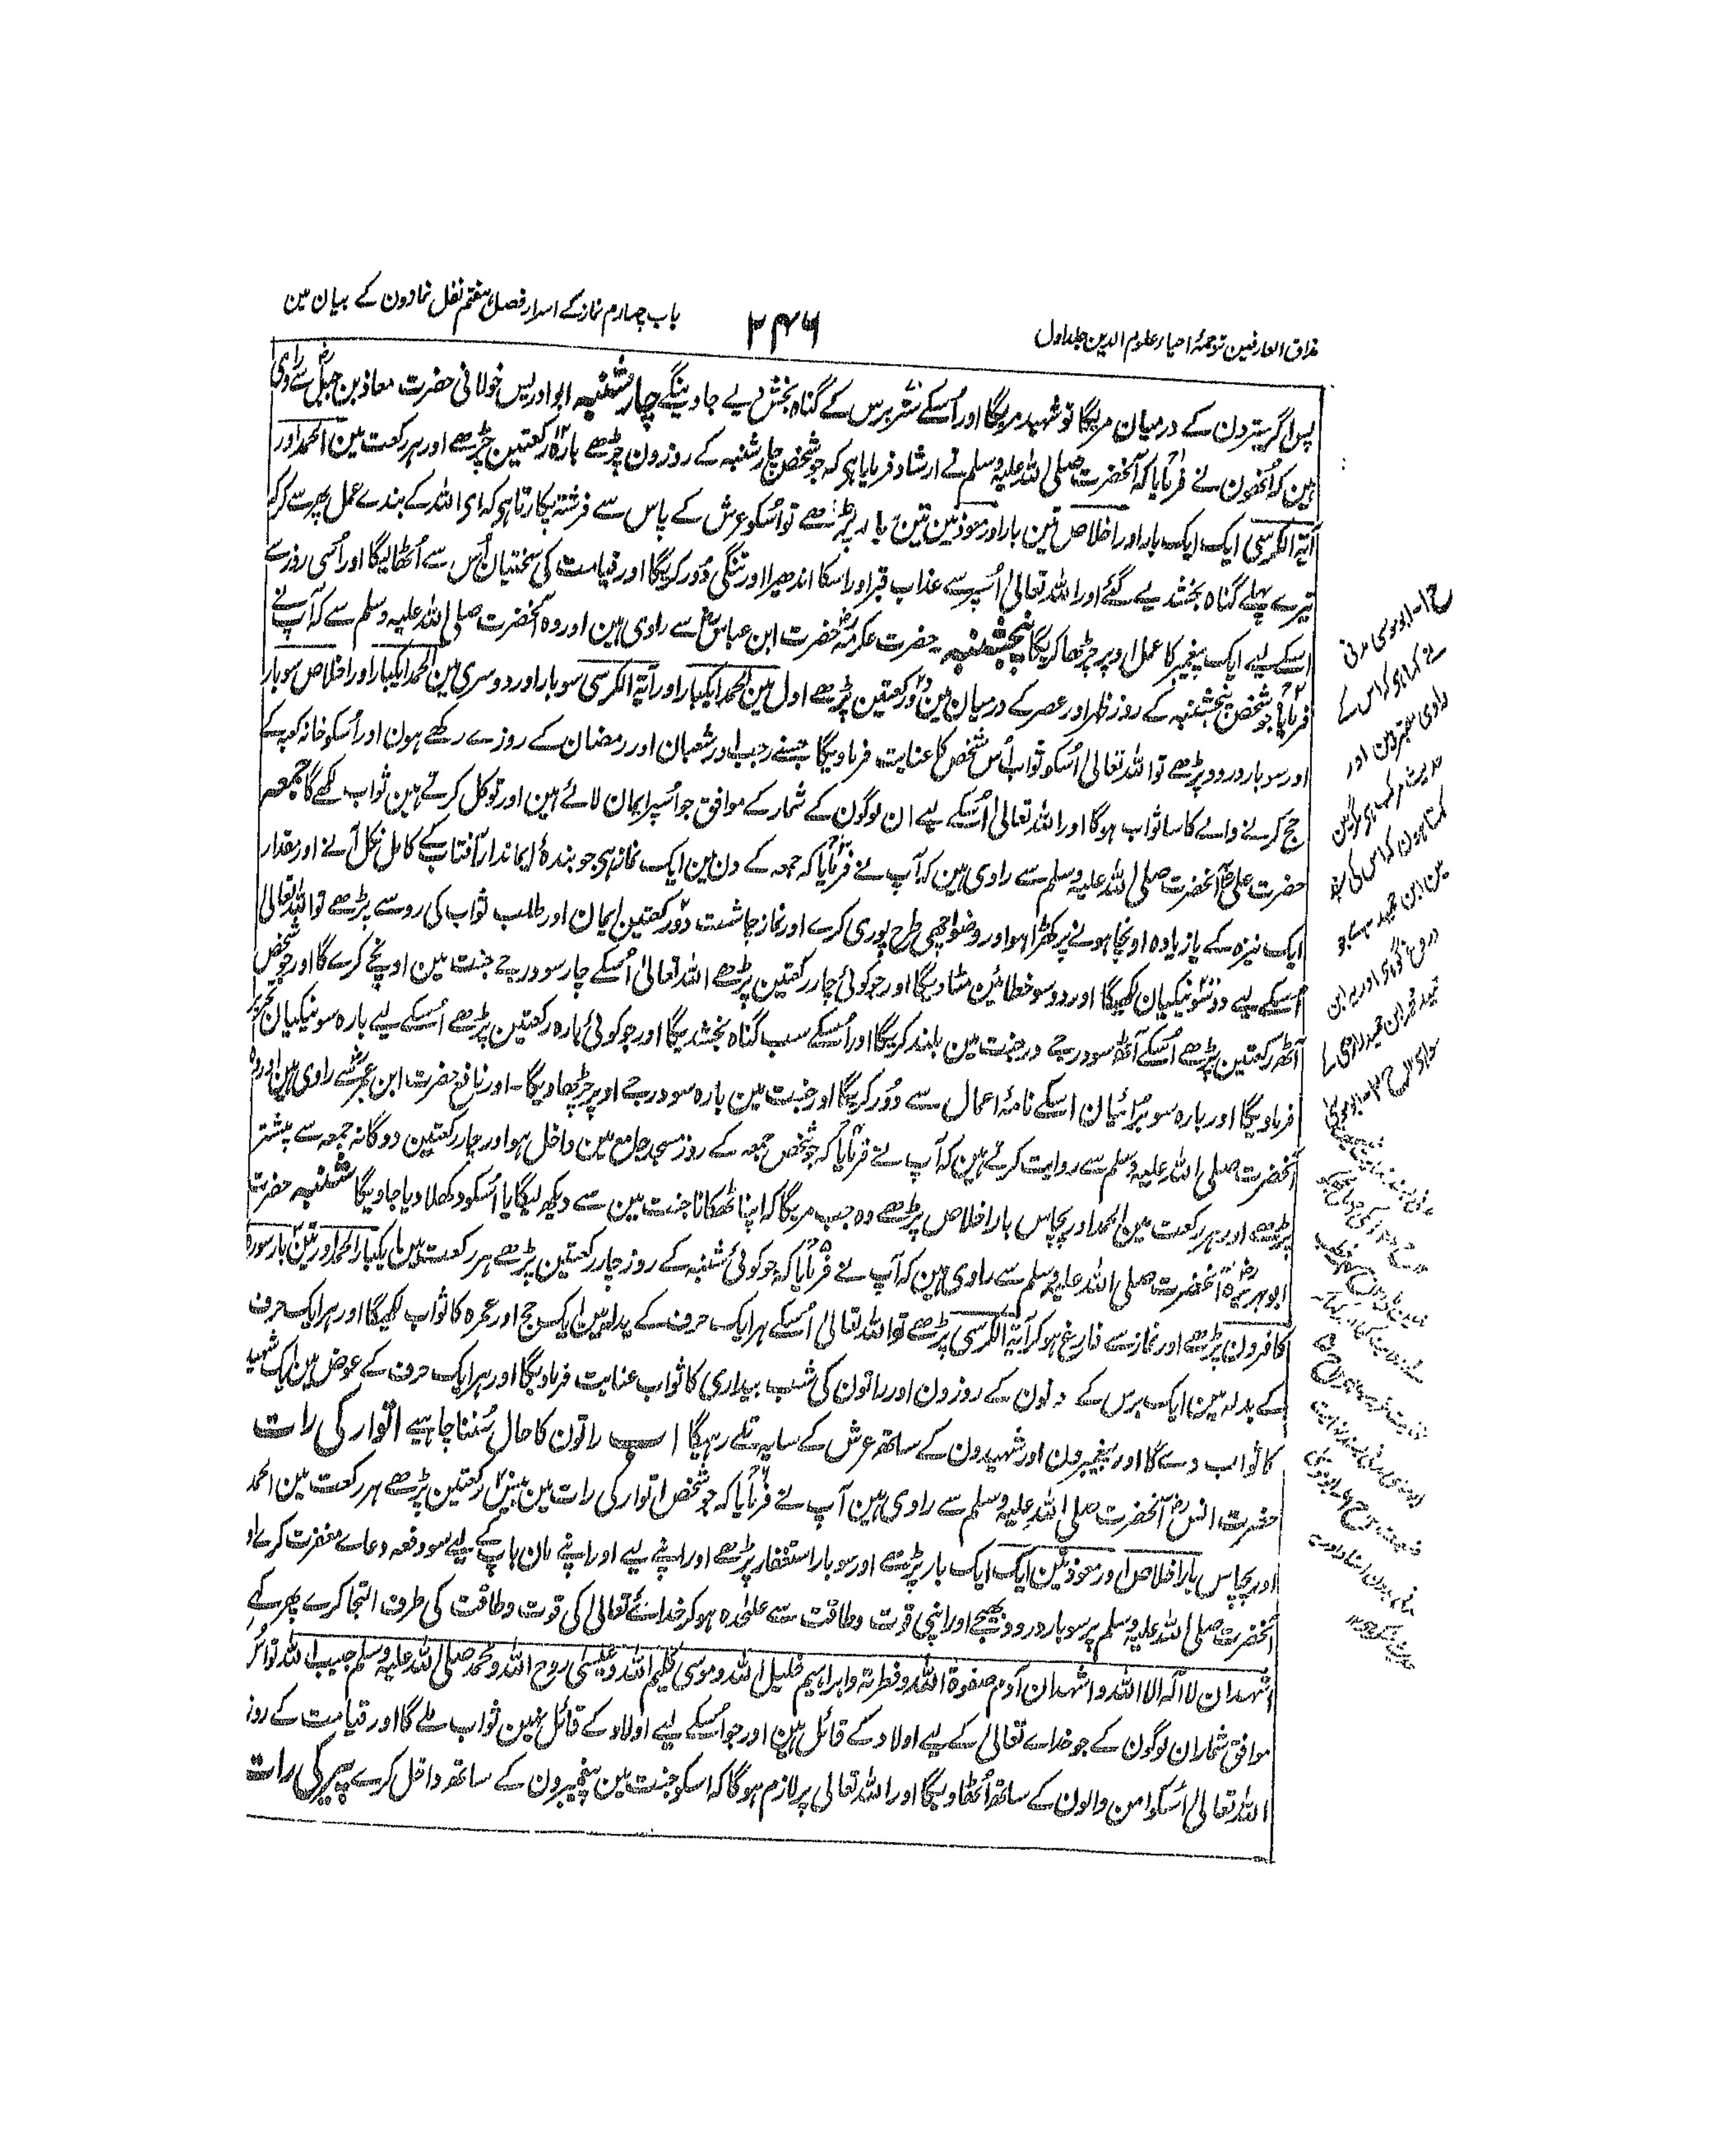 مذاق العارفین ترجمۂ احیاء علوم الدین جلد اول
۲۴۶
باب چہارم نماز کے اسرار فصل ہفتم نفل نمازون کے بیان مین
پس اگر ستر دن کے درمیان مریگا تو شہید مریگا اور اُسکے ستر برس کے گناہ بخش دیے جاوینگے چار شنبہ ابو ادریس خولانی حضرت معاذ بن جبلؓ سے راوی
ہین کہ اُنھون نے فرمایا کہ آنحضرت صلی اللہ علیہ وسلم نے ارشاد فرمایا ہی کہ جو شخص چار شنبہ کے روز دن چڑھے بارہ رکعتین پڑھے اور ہر رکعت مین الحمد اور
آیۃ الکرسی ایک ایک بار اور اخلاص تین بار اور معوذتین تین بار پڑھے تو اُسکو عرش کے پاس سے فرشتہ پکارتا ہی کہ ای اللہ کے بندے عمل پھر سے کر کہ
تیرے پہلے گناہ بخشدیے گئے اور اللہ تعالی اُسپر سے عذاب قبر اور اسکا اندھیرا اور تنگی دُور کریگا اور قیامت کی سختیان اُس سے اُٹھالیگا اور اُسی روز سے
اسکے لیے ایک پیغمبر کا عمل اوپر چڑھا کریگا پنجشنبہ۔ حضرت عکرمہؓ حضرت ابن عباسؓ سے راوی ہین اور وہ آنحضرت صلی اللہ علیہ وسلم سے کہ آپ نے
فرمایا جو شخص پنجشنبہ کے روز ظہر اور عصر کے درمیان مین دو رکعتین پڑھے اول مین الحمد ایکبار اور آیۃ الکرسی سو بار اور دوسری مین الحمد ایکبار اور اخلاص سو بار
اور سو بار درود پڑھے تو اللہ تعالی اُسکو ثواب اُس شخص کا عنایت فرماویگا جسنے رجب اور شعبان اور رمضان کے روزے رکھے ہون اور اُسکو خانہ کعبہ کے
حج کرنے والے کا سا ثواب ہوگا اور اللہ تعالی اُسکے لیے ان لوگون کے شمار کے موافق جو اُسپر ایمان لائے ہین اور توکل کرتے ہین ثواب لکھے گا جمعہ
حضرت علیؓ آنحضرت صلی اللہ علیہ وسلم سے راوی ہین کہ آپ نے فرمایا کہ جمعہ کے دن مین ایک نماز ہی جو بندۂ ایماندار آفتاب کے کامل نکل آنے اور مقدار
ایک نیزہ کے یا زیادہ اونچا ہونے پر کھڑا ہو اور وضو اچھی طرح پوری کرے اور نماز چاشت دو رکعتین ایمان اور طلب ثواب کی رو سے پڑھے تو اللہ تعالی
اُسکے لیے دو سو نیکیان لکھیگا اور دو سو خطائین مٹادیگا اور جو کوئی چار رکعتین پڑھے اللہ تعالی اُسکے چار سو درجے جنت مین اونچے کرے گا اور جو شخص
آٹھ رکعتین پڑھے اُسکے آٹھ سو درجے جنت مین بلند کریگا اور اُسکے سب گناہ بخشدیگا اور جو کوئی بارہ رکعتین پڑھے اُسکے لیے بارہ سو نیکیان تحریر
فرماویگا اور بارہ سو بُرائیان اسکے نامۂ اعمال سے دُور کریگا اور جنت مین بارہ سو درجے اوپر چڑھاویگا۔ اور نافع حضرت ابن عمرؓ سے راوی ہین اور وہ
آنحضرت صلی اللہ علیہ وسلم سے روایت کرتے ہین کہ آپ نے فرمایا کہ جو شخص جمعہ کے روز مسجد جامع مین داخل ہو اور چار رکعتین دوگانہ جمعہ سے پیشتر
پڑھے اور ہر رکعت مین الحمد اور پچاس بار اخلاص پڑھے وہ جب مریگا کہ اپنا ٹھکانا جنت مین سے دیکھ لیگا یا اُسکو دکھلا دیا جاویگا شنبہ حضرت
ابو ہریرہؓ آنحضرت صلی اللہ علیہ وسلم سے راوی ہین کہ آپ نے فرمایا کہ جو کوئی شنبہ کے روز چار رکعتین پڑھے ہر رکعت مین ایکبار الحمد اور تین بار سورہ
کافرون پڑھے اور نماز سے فارغ ہوکر آیۃ الکرسی پڑھے تو اللہ تعالی اُسکے ہر ایک حرف کے بدلہ مین ایک حج اور عمرہ کا ثواب لکھیگا اور ہر ایک حرف
کے بدلہ مین ایک برس کے دنون کے روزون اور راتون کی شب بیداری کا ثواب عنایت فرماویگا اور ہر ایک حرف کے عوض مین ایک شہید
کا ثواب دے گا اور پیغمبرون اور شہیدون کے ساتھ عرش کے سایہ تلے رہیگا اب راتون کا حال سُننا چاہیے اتوار کی رات
حضرت انسؓ آنحضرت صلی اللہ علیہ وسلم سے راوی ہین آپ نے فرمایا کہ جو شخص اتوار کی رات مین بیس رکعتین پڑھے ہر رکعت مین الحمد
اور پچاس بار اخلاص اور معوذتین ایک ایک بار پڑھے اور سو بار استغفار پڑھے اور اپنے لیے اور اپنے مان باپ کے لیے سو دفعہ دعاے مغفرت کرے او
آنحضرت صلی اللہ علیہ وسلم پر سو بار درود بھیجے اور اپنی قوت و طاقت سے علٰحدہ ہوکر خداے تعالی کی قوت و طاقت کی طرف التجا کرے پھر کہے
اشہد ان لا الہ الا اللہ و اشہد ان آدم صفوۃ اللہ و فطرتہ و ابراہیم خلیل اللہ و موسی کلیم اللہ و عیسی روح اللہ و محمد صلی اللہ علیہ وسلم حبیب اللہ تو اُسکو
موافق شمار ان لوگون کے جو خداے تعالی کے لیے اولاد کے قائل ہین اور جو اُسکے لیے اولاد کے قائل نہین ثواب ملے گا اور قیامت کے روز
اللہ تعالی اُسکو امن والون کے ساتھ اُٹھاویگا اور اللہ تعالی پر لازم ہوگا کہ اسکو جنت مین پیغمبرون کے ساتھ داخل کرے پیر کی رات
ح ۱- ابو موسی مدنی
نے کہا ہی کہ اس کے
راوی معتبر ہین اور
کہتا ہون کہ اس کی
مین ابن حمید ہے جو
دروغ گو ہی اور یہ ابن
حمید محمد ابن حمید رازی